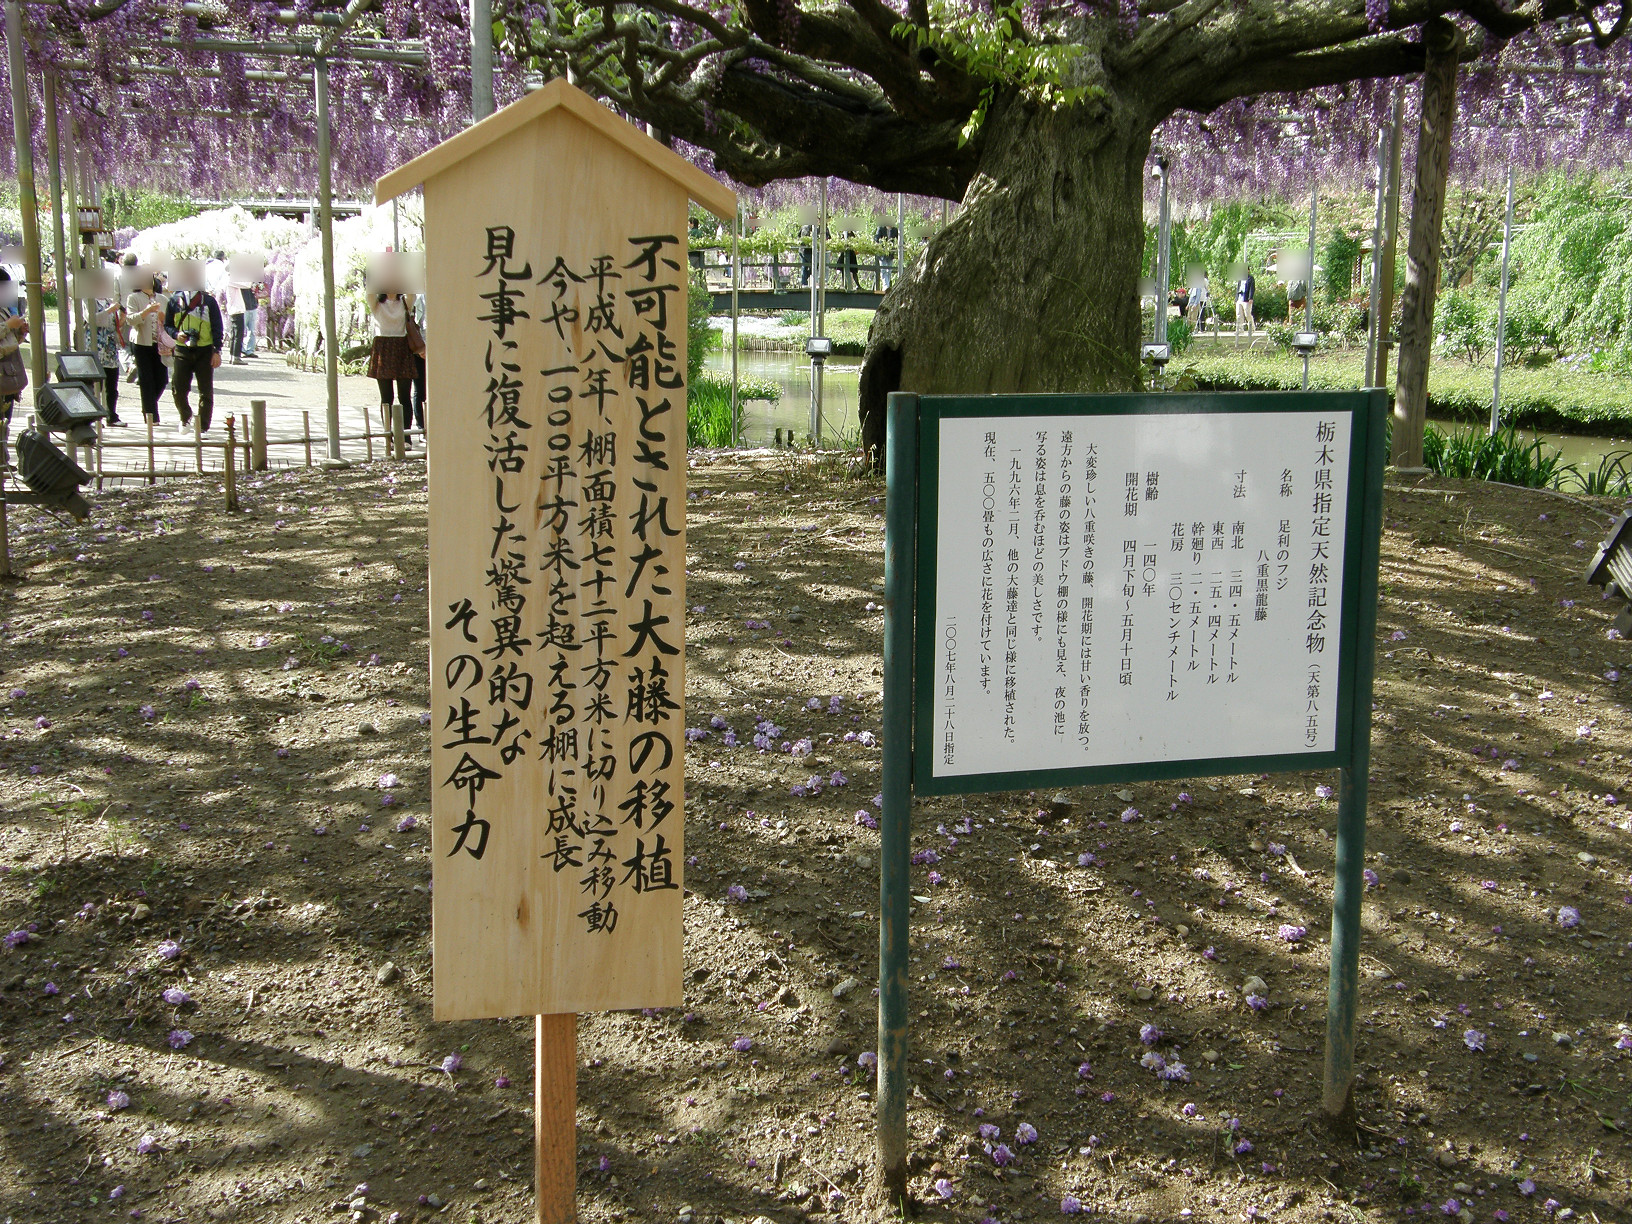 不可能とされた大藤の移植
平成八年、棚面積七十二平方米に切り込み移動
今や、一〇〇〇平方米を超える棚に成長
見事に復活した驚異的な
その生命力
栃木県指定天然記念物（天第八五号）
名称　足利のフジ
八重黒龍藤
寸法　南北　三四・五メートル
東西　二五・四メートル
幹廻り　二・五メートル
花房　三〇センチメートル
樹齢　一四〇年
開花期　四月下旬～五月十日頃
大変珍しい八重咲きの藤、開花期には甘い香りを放つ。
遠方からの藤の姿はブドウ棚の様にも見え、夜の池に
写る姿は息を呑むほどの美しさです。
一九九六年二月、他の大藤達と同じ様に移植された。
現在、五〇〇畳もの広さに花を付けています。
二〇〇七年八月二十八日指定